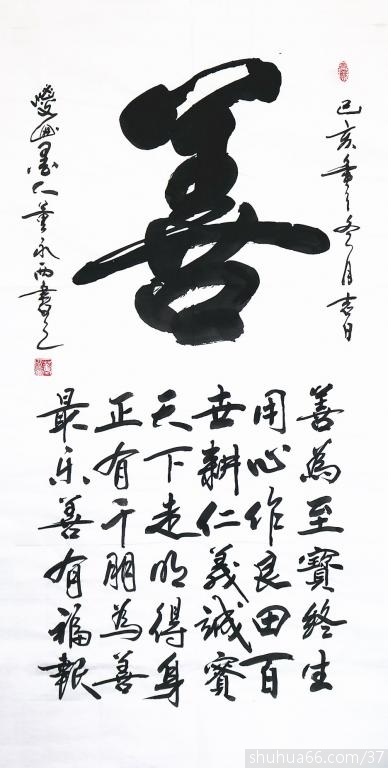 己亥年之冬月吉日
善
墨人董永書之
善為至寶終生
用心作良田百
世耕仁義誠實
天下走明得身
正有千朋為善
最乐善有福報
shuhua66.com/37